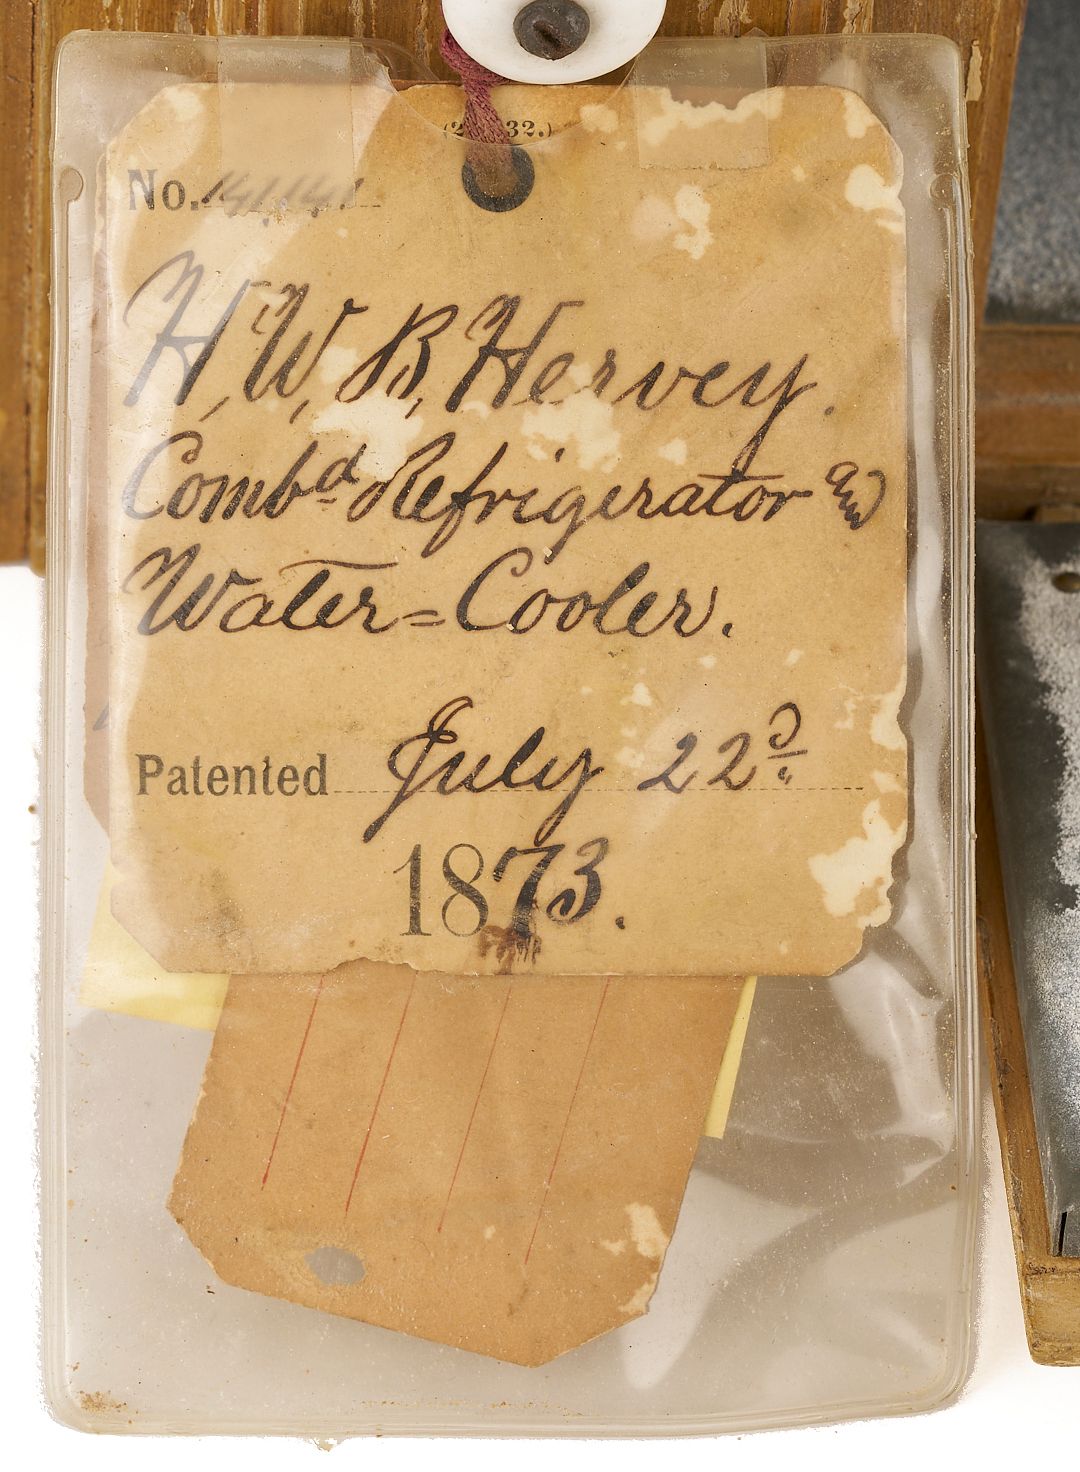 No. 141,141
H, W, B, Hervey.
Comb^d Refrigerator &
Water=Cooler.
Patented July 22^d
1873.